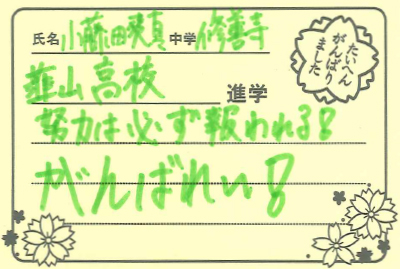 氏名 小藤田 瑛真 中学 修善寺
たいへん
がんばり
ました
韮山高校 進学
努力は必ず報われる!
がんばれい!